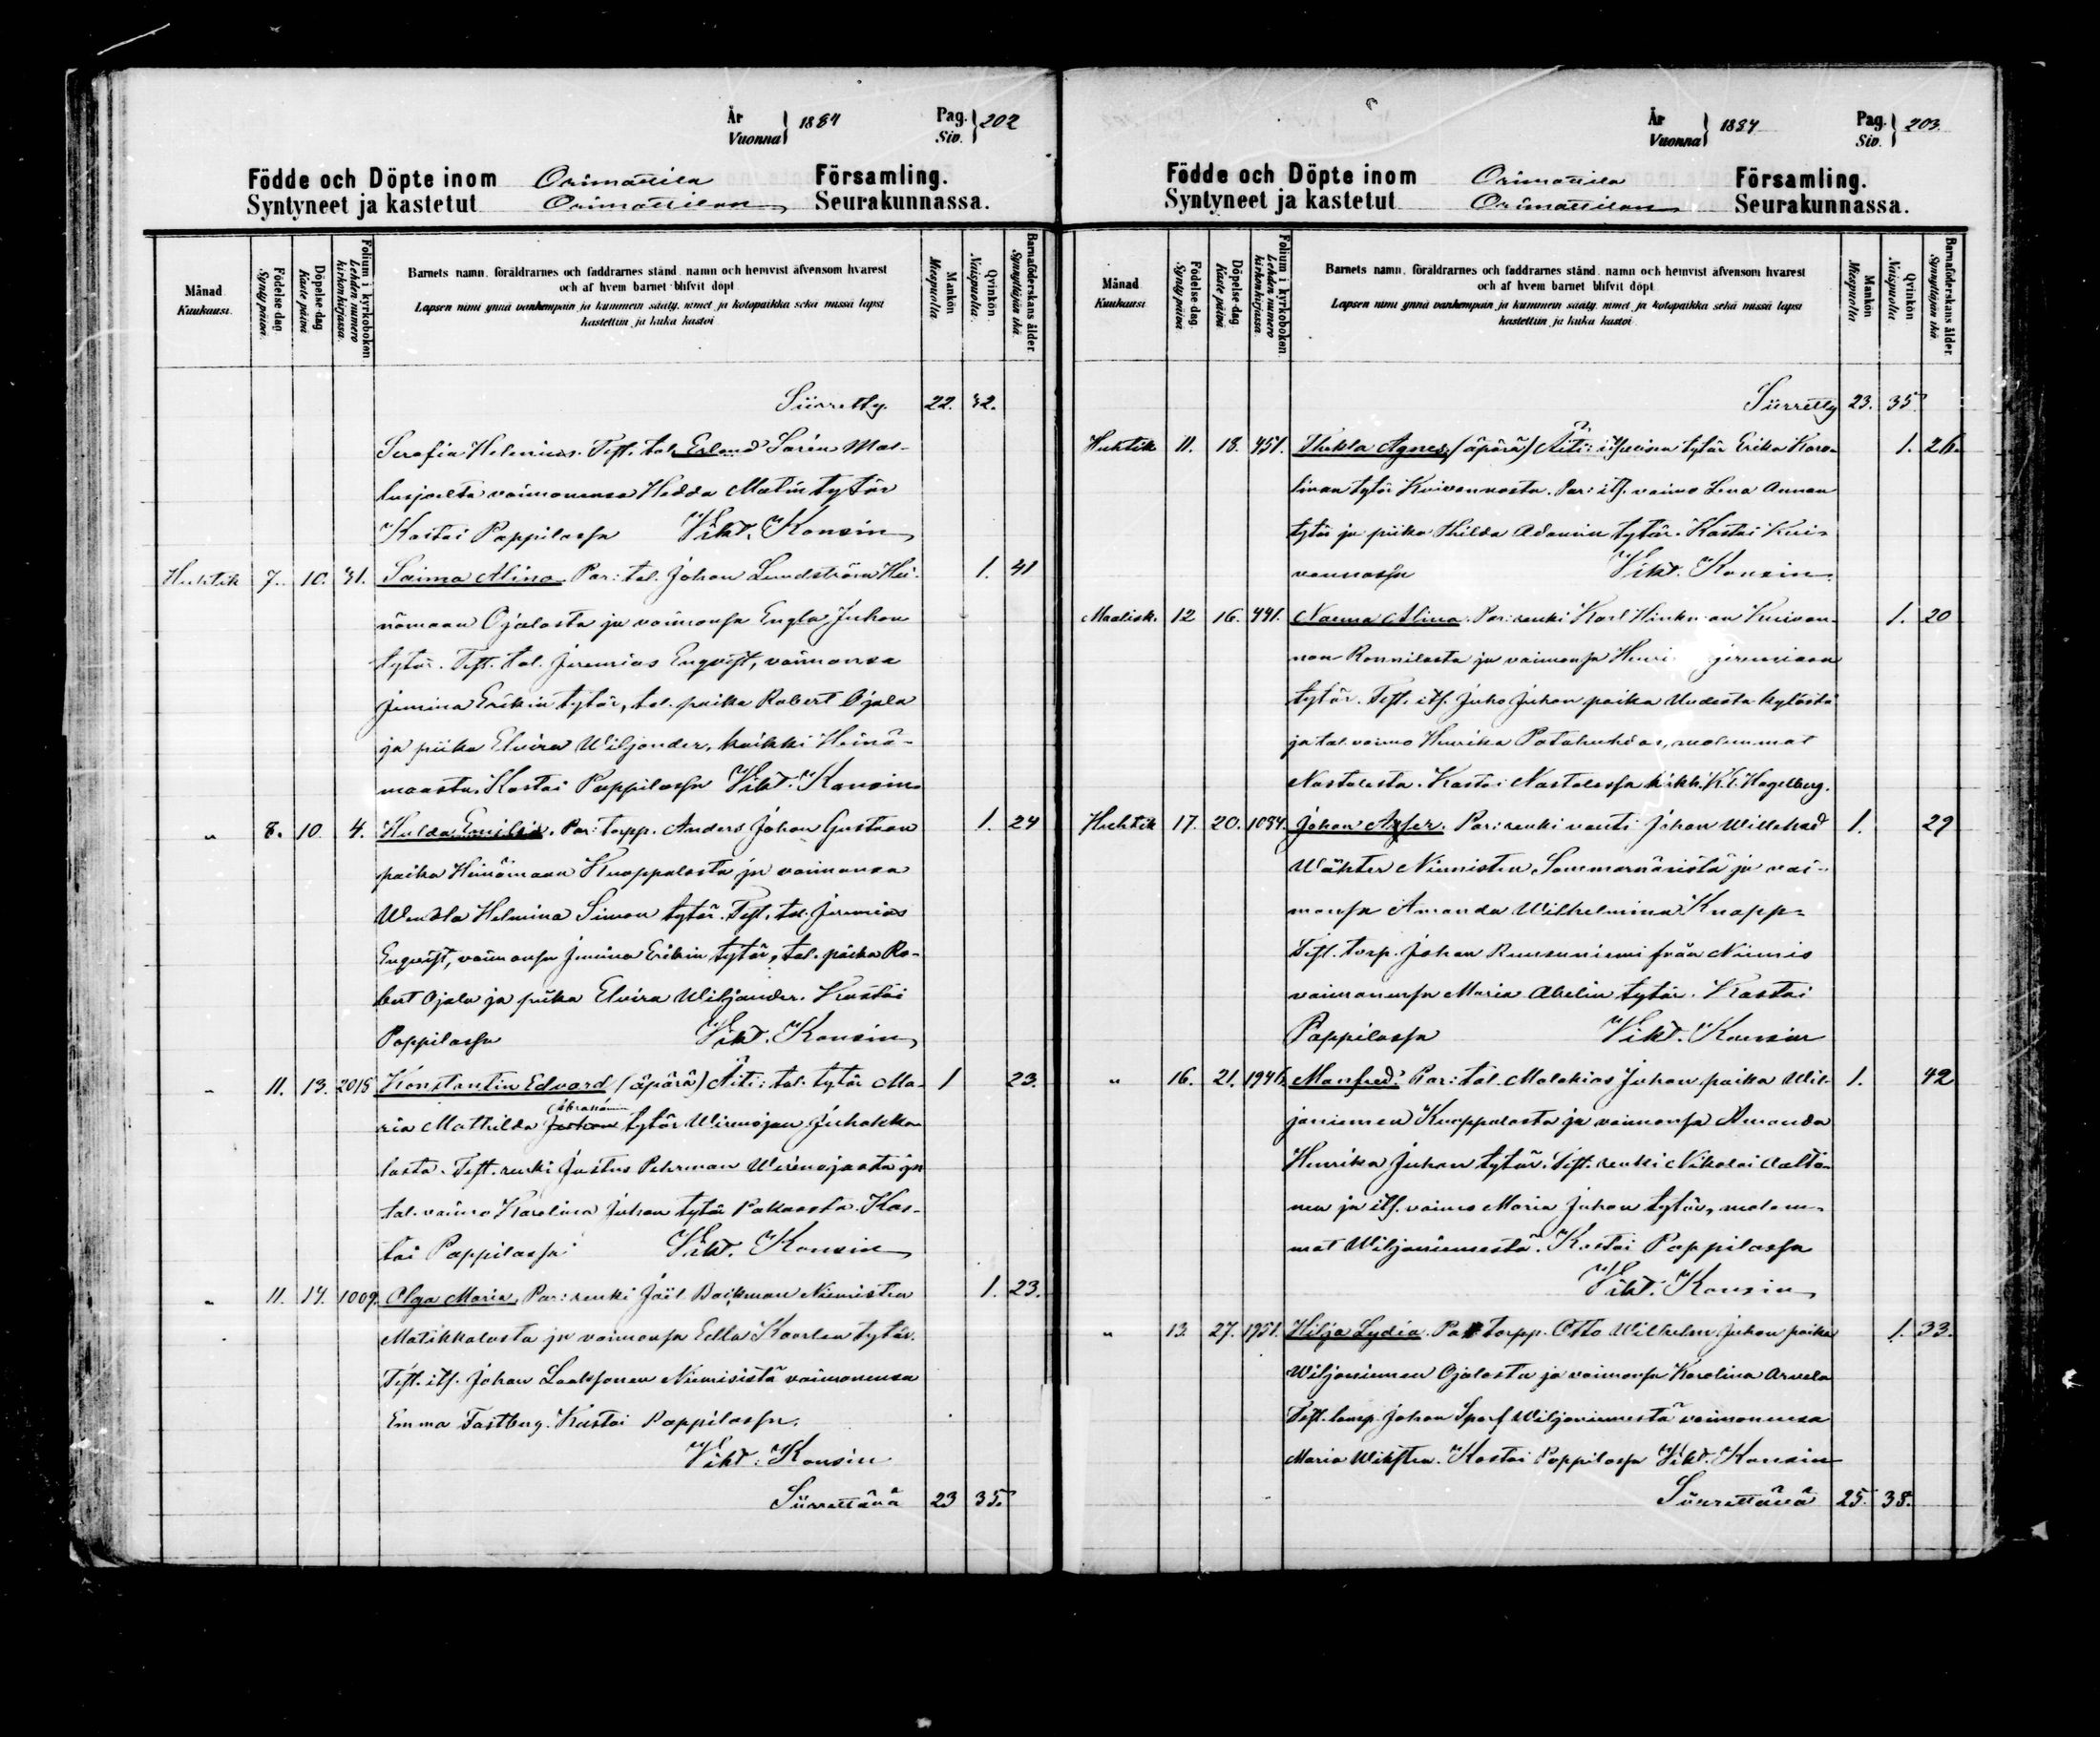 År
Vuonna } 1884
Pag.
Siv. } 202
Födde och Döpte inom Orimattila Församling.
Syntyneet ja kastetut Orimattilan Seurakunnassa.
Månad Kuukausi. Födelse-dag Synty päivä. Döpelse-dag Kaste päivä Folium i kyrkoboken Lehden numero kirkonkirjassa. Barnets namn, föräldrarnes och faddrarnes stånd, namn och hemvist äfvensom hvarest och af hvem barnet blifvit döpt. Lapsen nimi ynnä vanhempain ja kummein sääty, nimet ja kotopaikka sekä missä lapsi kastettiin ja kuka kastoi Mankön Miespuolia Qvinkön Naispuolia. Barnaföderskans ålder Synnyttäjän ikä
Siirretty. 22. 32.
Serafia Helenius. Test. tal. Erland Sarén Mal-
lusjoelta vaimonensa Hedda Matin tytär
Kastoi Pappilassa Vikt. Konsin
Huhtik 7. 10. 31. Saima Alina. Par: tal. Johan Lundström Hei- 1. 41
nämaan Ojalasta ja vaimonsa Engla Juhon
tytär. Test. tal. Jeremias Enqvist, vaimonsa
Jemina Erikin tytär, tal. poika Robert Ojala
ja piika Elvira Wiljander, kaikki Heinä-
maasta. Kastoi Pappilassa Vikt. Konsin
" 8. 10. 4. Hulda Emilia. Par: torpp. Anders Johan Gustaan 1. 24
poika Heinämaan Knappalasta ja vaimonsa
Wendla Helmina Simon tytär. Test. tal. Jeremias
Enqvist, vaimonsa Jemina Erikin tytär, tal. poika Ro-
bert Ojala ja piika Elvira Wiljander. Kastoi
Pappilassa Vikt. Konsin
" 11. 13. 2015 Konstantin Edvard (äpärä) Äiti: tal. tytär Ma- 1 23.
Abrahamin
ria Mathilda Juhon tytär Wirenojan Juhakka-
lasta. Test. renki Justus Pehrman Wirenojasta ja
tal. vaimo Karolina Juhon tytär Pakaasta. Kas-
toi Pappilassa Vikt. Konsin
" 11. 14. 1009. Olga Maria. Par: renki Joël Backman Niemisten 1. 23.
Matikkalasta ja vaimonsa Edla Kaarlen tytär.
Test. its. Johan Laaksonen Niemisistä vaimonensa
Emma Fastberg. Kastoi Pappilassa.
Vikt. Konsin
Siirrettävä 23 35.
År
Vuonna } 1884
Pag.
Siv. } 203.
Födde och Döpte inom Orimattila Församling.
Syntyneet ja kastetut Orimattilan Seurakunnassa.
Månad Kuukausi Födelse-dag. Synty päivä. Döpelse-dag Kaste päivä Folium i kyrkoboken Lehden numero kirkonkirjassa. Barnets namn, föräldrarnes och faddrarnes stånd, namn och hemvist äfvensom hvarest och af hvem barnet blifvit döpt. Lapsen nimi ynnä vanhempain ja kummein sääty, nimet ja kotopaikka sekä missä lapsi kastettiin ja kuka kastoi. Mankön Miespuolia Qvinkön Naispuolia Barnaföderskans ålder Synnyttäjän ikä.
Siirretty 23. 35
Huhtik 11. 18. 451. Thekla Agnes (äpärä) Äiti: itsellisen tytär Erika Karo- 1. 26.
linan tytär Kuivannosta. Par: its. vaimo Lena Annan
tytär ja piika Hilda Adamin tytär. Kastoi Kui-
vannossa Vikt. Konsin.
Maalisk. 12 16. 441. Nanna Alina. Par: renki Karl Kuivan- 1. 20
non Ronnilasta ja vaimonsa Henri Jeremiaan
tytär. Test. its. Juho Juhon poika Uudesta kylästä
ja tal. vaimo Henrika molemmat
Nastolasta. Kastoi Nastolassa kirkkh. K. E. Hagelberg.
Huhtik 17. 20. 1084. Johan Axser. Par: renki vouti Johan Willehad 1. 29
Wähter Niemisten Sommarnäsistä ja vai-
monsa Amanda Wilhelmina Knapp-
Test. torp. Johan Ruusuniemi från Niemis
vaimonensa Maria Abelin tytär. Kastoi
Pappilassa Vikt. Konsin
" 16. 21. 1946. Manfred. Par: tal. Malakias Juhon poika Wil- 1. 42
janiemen Knappalasta ja vaimonsa Amanda
Henrika Juhon tytär. Test. renki Nikolai Aalto-
nen ja its. vaimo Maria Juhon tytär, molem-
mat Wiljaniemestä. Kastoi Pappilassa
Vikt. Konsin
" 13. 27. 1951. Hilja Lydia. Par torpp. Otto Wilhelm Juhon poika 1. 33.
Wiljaniemen Ojalasta ja vaimonsa Karolina Arvela
Test. lamp. Johan Sparf Wiljaniemestä vaimonensa
Maria Wikstén. Kastoi Pappilassa Vikt. Konsin
Siirrettävä 25. 38.